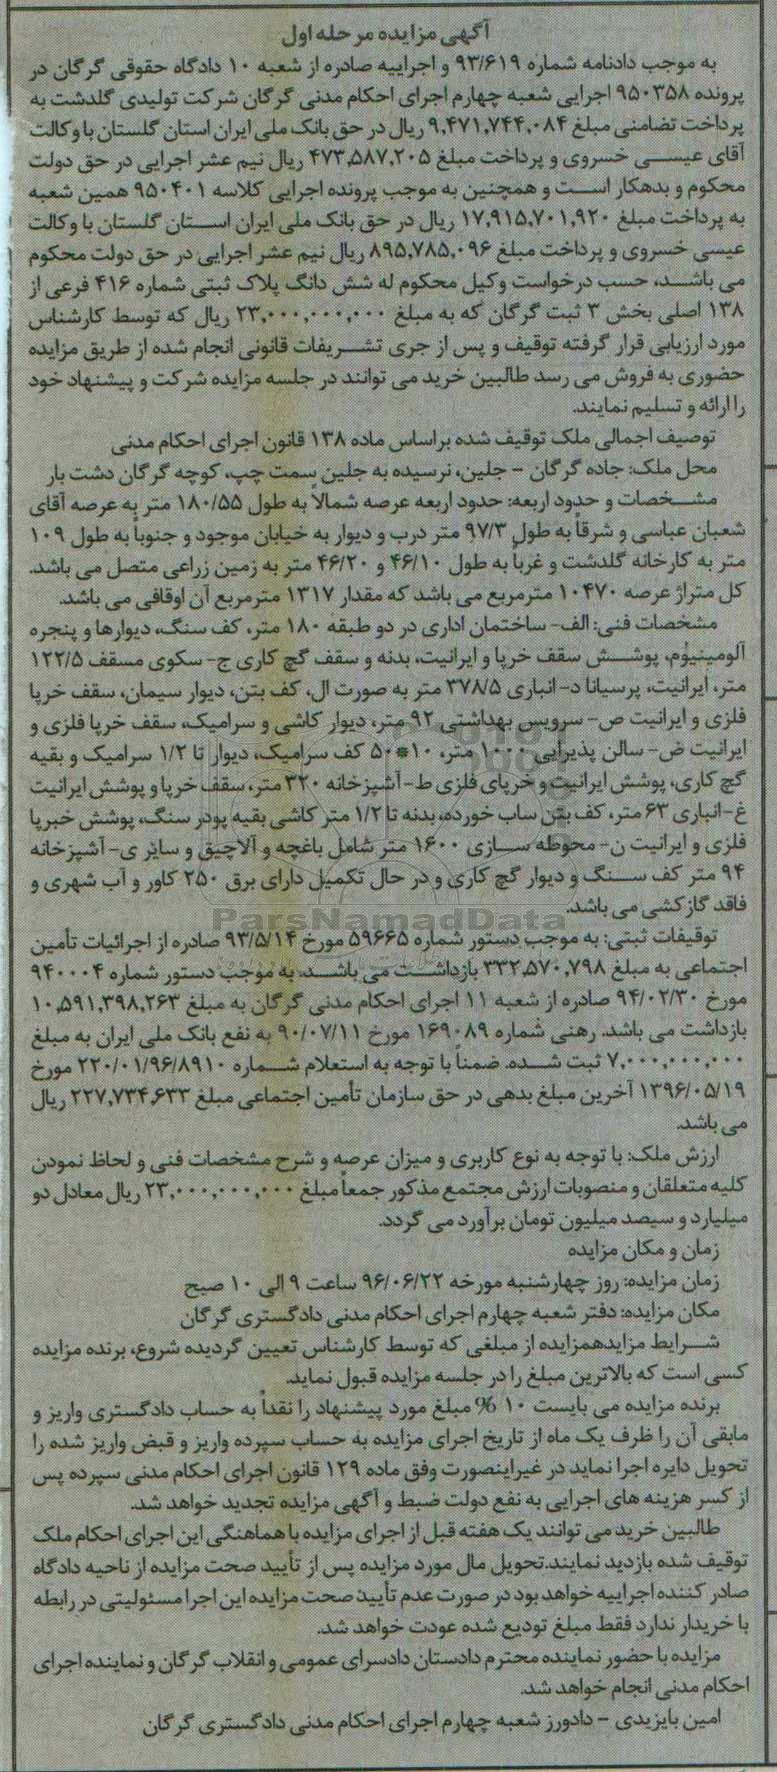 آگهی مزایده مرحله اول
به موجب دادنامه شماره ۹۳/۶۱۹ و اجراییه صادره از شعبه ۱۰ دادگاه حقوقی گرگان در
پرونده ۹۵۰۳۵۸ اجرایی شعبه چهارم اجرای احکام مدنی گرگان شرکت تولیدی گلدشت به
پرداخت تضامنی مبلغ ۹,۴۷۱,۷۴۴,۰۸۴ ریال در حق بانک ملی ایران استان گلستان با وکالت
آقای عیسی خسروی و پرداخت مبلغ ۴۷۳,۵۸۷,۲۰۵ ریال نیم عشر اجرایی در حق دولت
محکوم و بدهکار است و همچنین به موجب پرونده اجرایی کلاسه ۹۵۰۴۰۱ همین شعبه
به پرداخت مبلغ ۱۷,۹۱۵,۷۰۱,۹۲۰ ریال در حق بانک ملی ایران استان گلستان با وکالت
عیسی خسروی و پرداخت مبلغ ۸۹۵,۷۸۵,۰۹۶ ریال نیم عشر اجرایی در حق دولت محکوم
می باشد، حسب درخواست وکیل محکوم له شش دانگ پلاک ثبتی شماره ۴۱۶ فرعی از
۱۳۸ اصلی بخش ۳ ثبت گرگان که به مبلغ ۲۳,۰۰۰,۰۰۰,۰۰۰ ریال که توسط کارشناس
مورد ارزیابی قرار گرفته توقیف و پس از جری تشریفات قانونی انجام شده از طریق مزایده
حضوری به فروش می رسد طالبین خرید می توانند در جلسه مزایده شرکت و پیشنهاد خود
را ارائه و تسلیم نمایند.
توصیف اجمالی ملک توقیف شده براساس ماده ۱۳۸ قانون اجرای احکام مدنی
محل ملک: جاده گرگان - جلین، نرسیده به جلین سمت چپ، کوچه گرگان دشت بار
مشخصات و حدود اربعه: حدود اربعه عرصه شمالاً به طول ۱۸۰/۵۵ متر به عرصه آقای
شعبان عباسی و شرقاً به طول ۹۷/۳ متر درب و دیوار به خیابان موجود و جنوباً به طول ۱۰۹
متر به کارخانه گلدشت و غرباً به طول ۴۶/۱۰ و ۴۶/۲۰ متر به زمین زراعی متصل می باشد.
کل متراژ عرصه ۱۰۴۷۰ مترمربع می باشد که مقدار ۱۳۱۷ مترمربع آن اوقافی می باشد.
مشخصات فنی: الف- ساختمان اداری در دو طبقه ۱۸۰ متر، کف سنگ، دیوارها و پنجره
آلومینیوم، پوشش سقف خرپا و ایرانیت، بدنه و سقف گچ کاری ج- سکوی مسقف ۱۲۲/۵
متر، ایرانیت، پرسیانا د- انباری ۳۷۸/۵ متر به صورت ال، کف بتن، دیوار سیمان، سقف خرپا
فلزی و ایرانیت ص- سرویس بهداشتی ۹۲ متر، دیوار کاشی و سرامیک، سقف خرپا فلزی و
ایرانیت ض- سالن پذیرایی ۱۰۰۰ متر، ۱۰*۵۰ کف سرامیک، دیوار تا ۱/۲ سرامیک و بقیه
گچ کاری، پوشش ایرانیت و خرپای فلزی ط- آشپزخانه ۳۲۰ متر، سقف خرپا و پوشش ایرانیت
غ- انباری ۶۳ متر، کف بتن ساب خورده، بدنه تا ۱/۲ متر کاشی بقیه پودر سنگ، پوشش خرپا
فلزی و ایرانیت ن- محوطه سازی ۱۶۰۰ متر شامل باغچه و آلاچیق و سایر ی- آشپزخانه
۹۴ متر کف سنگ و دیوار گچ کاری و در حال تکمیل دارای برق ۲۵۰ کاور و آب شهری و
فاقد گازکشی می باشد.
ParsNamadData
توقیفات ثبتی: به موجب دستور شماره ۵۹۶۶۵ مورخ ۹۳/۵/۱۴ صادره از اجرائیات تأمین
اجتماعی به مبلغ ۳۳۲,۵۷۰,۷۹۸ بازداشت می باشد. به موجب دستور شماره ۹۴۰۰۰۴
مورخ ۹۴/۰۲/۳۰ صادره از شعبه ۱۱ اجرای احکام مدنی گرگان به مبلغ ۱۰,۵۹۱,۳۹۸,۲۶۳
بازداشت می باشد. رهنی شماره ۱۶۹۰۸۹ مورخ ۹۰/۰۷/۱۱ به نفع بانک ملی ایران به مبلغ
۷,۰۰۰,۰۰۰,۰۰۰ ثبت شده. ضمناً با توجه به استعلام شماره ۲۲۰/۰۱/۹۶/۸۹۱۰ مورخ
۱۳۹۶/۰۵/۱۹ آخرین مبلغ بدهی در حق سازمان تأمین اجتماعی مبلغ ۲۲۷,۷۳۴,۶۳۳ ریال
می باشد.
ارزش ملک: با توجه به نوع کاربری و میزان عرصه و شرح مشخصات فنی و لحاظ نمودن
کلیه متعلقان و منصوبات ارزش مجتمع مذکور جمعاً مبلغ ۲۳,۰۰۰,۰۰۰,۰۰۰ ریال معادل دو
میلیارد و سیصد میلیون تومان برآورد می گردد.
زمان و مکان مزایده
زمان مزایده: روز چهارشنبه مورخه ۹۶/۰۶/۲۲ ساعت ۹ الی ۱۰ صبح
مکان مزایده: دفتر شعبه چهارم اجرای احکام مدنی دادگستری گرگان
شرایط مزایدهمزایده از مبلغی که توسط کارشناس تعیین گردیده شروع، برنده مزایده
کسی است که بالاترین مبلغ را در جلسه مزایده قبول نماید.
برنده مزایده می بایست ۱۰ % مبلغ مورد پیشنهاد را نقداً به حساب دادگستری واریز و
مابقی آن را ظرف یک ماه از تاریخ اجرای مزایده به حساب سپرده واریز و قبض واریز شده را
تحویل دایره اجرا نماید در غیراینصورت وفق ماده ۱۲۹ قانون اجرای احکام مدنی سپرده پس
از کسر هزینه های اجرایی به نفع دولت ضبط و آگهی مزایده تجدید خواهد شد.
طالبین خرید می توانند یک هفته قبل از اجرای مزایده با هماهنگی این اجرای احکام ملک
توقیف شده بازدید نمایند.تحویل مال مورد مزایده پس از تأیید صحت مزایده از ناحیه دادگاه
صادر کننده اجراییه خواهد بود در صورت عدم تأیید صحت مزایده این اجرا مسئولیتی در رابطه
با خریدار ندارد فقط مبلغ تودیع شده عودت خواهد شد.
مزایده با حضور نماینده محترم دادستان دادسرای عمومی و انقلاب گرگان و نماینده اجرای
احکام مدنی انجام خواهد شد.
امین بایزیدی - دادورز شعبه چهارم اجرای احکام مدنی دادگستری گرگان